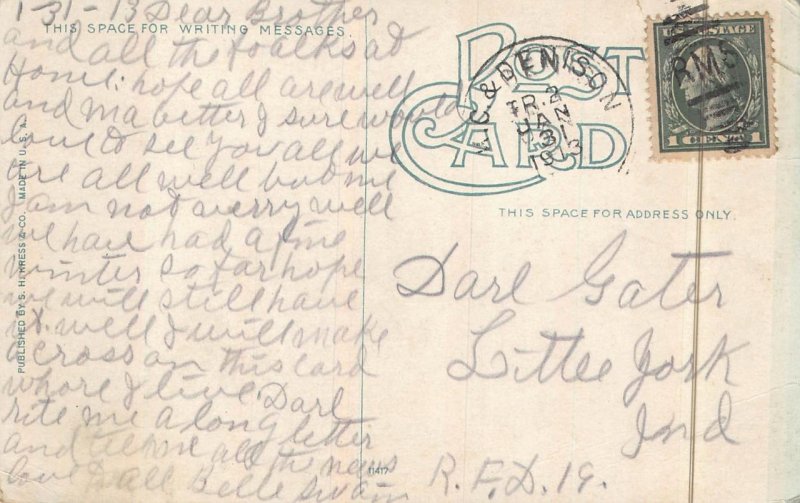 1-31-13 Dear Brother
THIS SPACE FOR WRITING MESSAGES.
and all the foalks at
Home. hope all are well
and ma better I sure would
love to see you all we
are all well but me
I am not verry well
we have had a fine
winter so far hope
we will still have
it. well I will make
a cross on this card
whore I live. Darl
rite me a long letter
and tell me all the news
love to all Belle Swaim
PUBLISHED BY S. H. KRESS & CO. MADE IN U. S. A.
11417
POST
CARD
K.C. & DENISON
TR. 2
JAN
31
1913
RMS
U.S. POSTAGE
1 CENT 1
THIS SPACE FOR ADDRESS ONLY.
Darl Gater
Little York
Ind
R.F.D. 19.